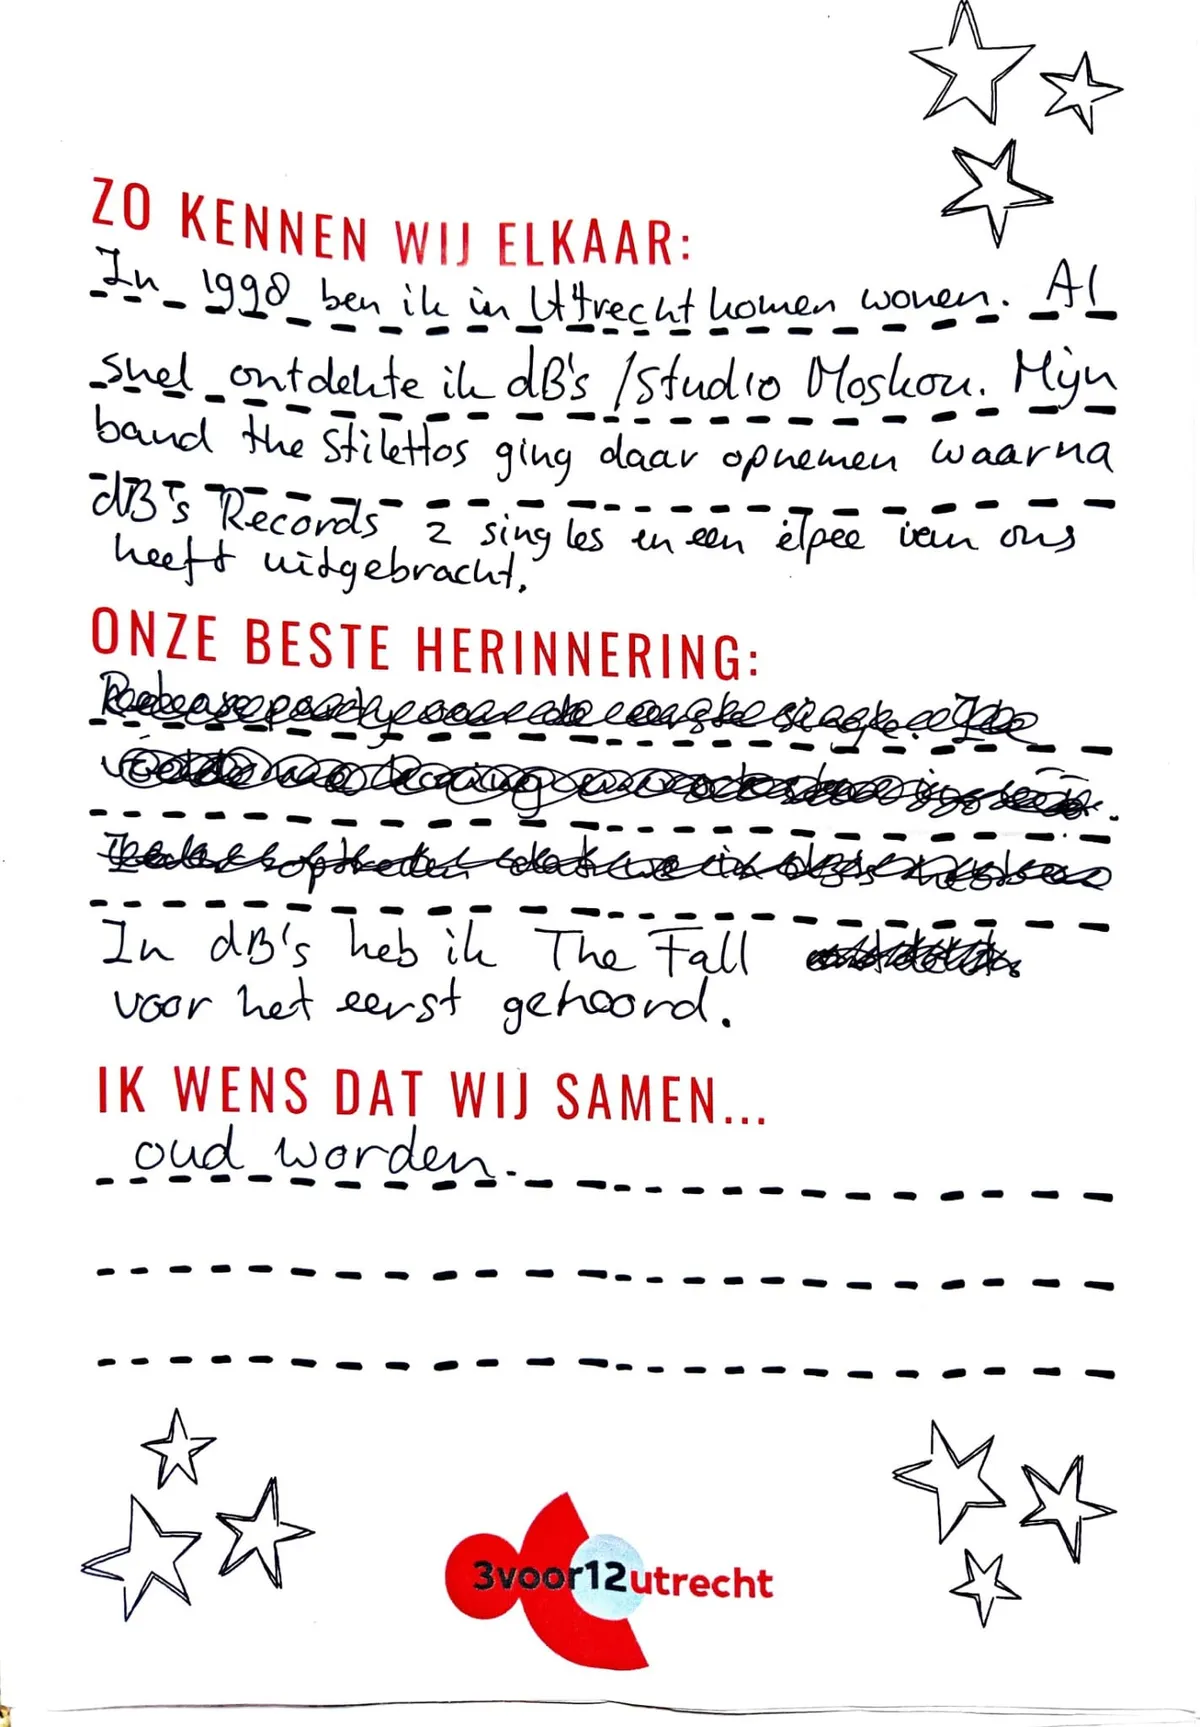 ZO KENNEN WIJ ELKAAR:
In 1998 ben ik in Uttrecht komen wonen. Al
snel ontdekte ik dB's / Studio Moskou. Mijn
band the Stilettos ging daar opnemen waarna
dB's Records 2 singles en een elpee van ons
heeft uitgebracht.
ONZE BESTE HERINNERING:
In dB's heb ik The Fall
voor het eerst gehoord.
IK WENS DAT WIJ SAMEN...
oud worden.
3voor12utrecht